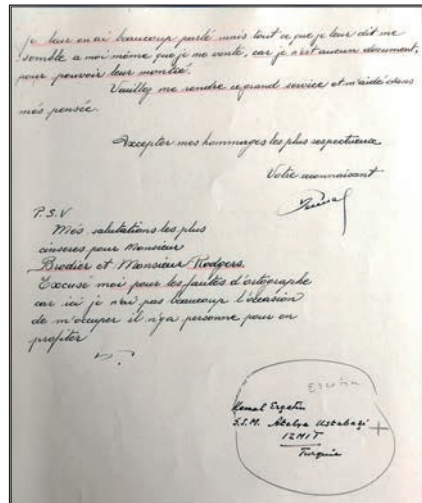 je leur en ai beaucoup parlé mais tout ce que je leur dit me
semble a moi même que je me vente, car je n'est aucun document,
pour pouvoir leur montré.
Veuillez me rendre ce grand service et m'aidé dans
més pensée.
Accepter mes hommages les plus respectueux
Votre reconnaisant
P.S.V
Més salutations les plus
cinseres pour Monsieur
Brodier et Monsieur Rodgers.
Excusé moi pour les fautes d'ortographe
car ici je n'ai pas beaucoup l'occasion
de m'occuper il n'ya personne pour en
profiter
Ergetin
Kemal Ergetin
S.S.M. Atelya Ustabaşi
IZMIT
Turquie